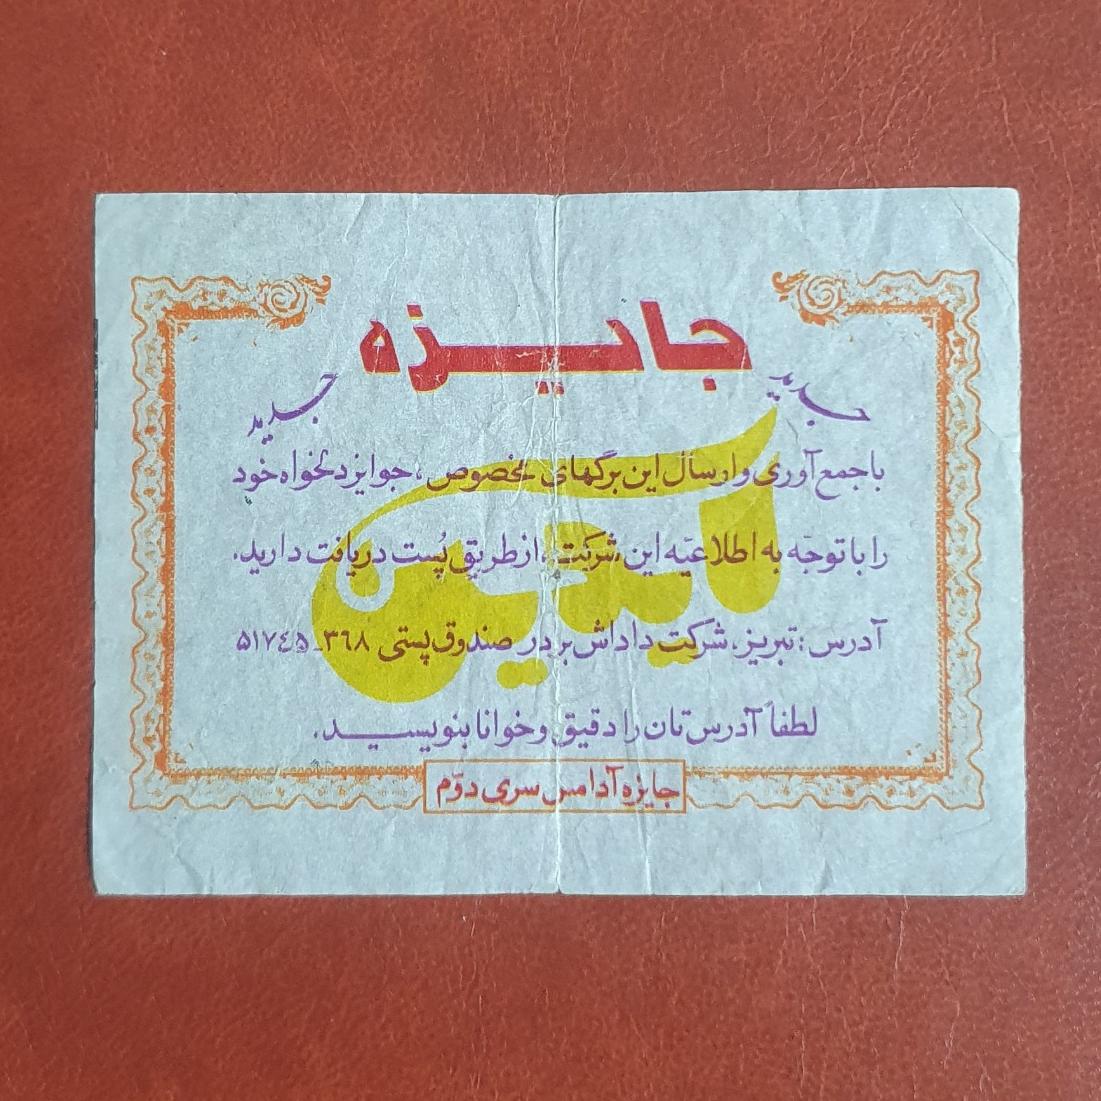 جایزه
جدید
جدید
آیدین
با جمع آوری و ارسال این برگهای مخصوص، جوایز دلخواه خود
را با توجّه به اطلاعیّه این شرکت، از طریق پُست دریافت دارید.
آدرس: تبریز، شرکت داداش برادر صندوق پستی ۳٦۸ـ۵۱۷٤۵
لطفاً آدرس تان را دقیق و خوانا بنویسید.
جایزه آدامس سری دوّم